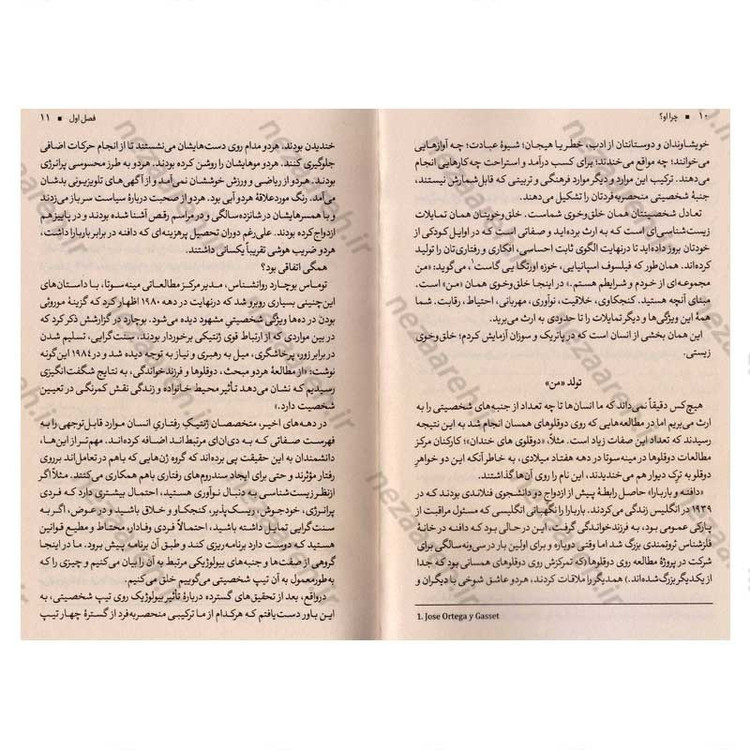 ۱۰ ■ چرا او؟
خویشاوندان و دوستانتان از ادب، خطر یا هیجان؛ شیوهٔ عبادت؛ چه آوازهایی
می‌خوانند؛ چه مواقع می‌خندند؛ برای کسب درآمد و استراحت چه کارهایی انجام
می‌دهند. ترکیب این موارد و دیگر موارد فرهنگی و تربیتی که قابل شمارش نیستند،
جنبهٔ شخصیتی منحصربه‌فردتان را تشکیل می‌دهند.
تعادل شخصیتتان همان خلق‌وخوی شماست. خلق‌وخویتان همان تمایلات
زیست‌شناسی‌ای است که به ارث برده‌اید و صفاتی است که در اوایل کودکی از
خودتان بروز داده‌اید تا درنهایت الگوی ثابت احساسی، افکاری و رفتاری‌تان را تولید
کرده‌اند. همان‌طور که فیلسوف اسپانیایی، خوزه اورتگا یی گاست۱، می‌گوید: «من
مجموعه‌ای از خودم و شرایطم هستم.» در اینجا خلق‌وخوی همان «من» است.
مبنای آنچه هستید. کنجکاوی، خلاقیت، نوآوری، مهربانی، احتیاط، رقابت. شما
همهٔ این ویژگی‌ها و دیگر تمایلات را تا حدودی به ارث می‌برید.
این همان بخشی از انسان است که در پاتریک و سوزان آزمایش کردم؛ خلق‌وخوی
زیستی.
تولد «من»
هیچ‌کس دقیقاً نمی‌داند که ما انسان‌ها تا چه تعداد از جنبه‌های شخصیتی را به
ارث می‌بریم اما در مطالعه‌هایی که روی دوقلوهای همسان انجام شد به این نتیجه
رسیدند که تعداد این صفات زیاد است. مثلاً، «دوقلوی های خندان»؛ کارکنان مرکز
مطالعات دوقلوها در مینه سوتا در دههٔ هفتاد میلادی، به خاطر آنکه این دو خواهرِ
دوقلو به ترک دیوار هم می‌خندیدند، این نام را روی آن‌ها گذاشتند.
«دافنه و باربارا» حاصل رابطهٔ پیش از ازدواج دو دانشجوی فنلاندی بودند که در
۱۹۳۹ در انگلیس زندگی می‌کردند. باربارا را نگهبانی انگلیسی که مسئول مراقبت از
پارکی عمومی بود، به فرزندخواندگی گرفت. این در حالی بود که دافنه در خانهٔ
فلزشناس ثروتمندی بزرگ شد اما وقتی دوباره و برای اولین بار در سی‌ونه سالگی برای
شرکت در پروژهٔ مطالعه روی دوقلوها(که تمرکزش روی دوقلوهای همسانی بود که جدا
از یکدیگر بزرگ شده‌اند.) همدیگر را ملاقات کردند، هردو عاشق شوخی با دیگران و
1. Jose Ortega y Gasset
فصل اول ■ ۱۱
خندیدن بودند. هردو مدام روی دست‌هایشان می‌نشستند تا از انجام حرکات اضافی
جلوگیری کنند. هردو موهایشان را روشن کرده بودند. هردو به طرز محسوسی پرانرژی
بودند. هردو از ریاضی و ورزش خوششان نمی‌آمد و از آگهی‌های تلویزیونی بدشان
می‌آمد. رنگ موردعلاقهٔ هردو آبی بود. هردو از صحبت دربارهٔ سیاست سر باز می‌زدند
و با همسرهایشان در شانزده‌سالگی و در مراسم رقص آشنا شده بودند و در پاییز هم
ازدواج کرده بودند. علی‌رغم دوران تحصیل پرهزینه‌ای که دافنه در برابر باربارا داشت،
هردو ضریب هوشی تقریباً یکسانی داشتند.
همگی اتفاقی بود؟
توماس بوچارد روانشناس، مدیر مرکز مطالعاتی مینه سوتا، با داستان‌های
این‌چنینی بسیاری روبرو شد که درنهایت در دهه ۱۹۸۰ اظهار کرد که گزینهٔ موروثی
بودن در ده‌ها ویژگی شخصیتی مشهود دیده می‌شود. بوچارد در گزارشش ذکر کرد که
در بین مواردی که از ارتباط قوی ژنتیکی برخوردار بودند، سنت‌گرایی، تسلیم شدن
در برابر زور، پرخاشگری، میل به رهبری و نیاز به توجه دیده شد و در ۱۹۸۴ این‌گونه
نوشت: «از مطالعهٔ هردو مبحث، دوقلوها و فرزندخواندگی، به نتایج شگفت‌انگیزی
رسیدیم که نشان می‌دهد تأثیر محیط خانواده و زندگی نقش کم‌رنگی در تعیین
شخصیت دارد.»
در دهه‌های اخیر، متخصصان ژنتیکِ رفتاریِ انسان موارد قابل‌توجهی را به
فهرست صفاتی که به دی‌ان‌ای مرتبط‌اند اضافه کرده‌اند. مهم‌تر از این‌ها،
دانشمندان به این حقیقت پی برده‌اند که گروه ژن‌هایی که باهم در تعامل‌اند بر روی
رفتار مؤثرند و حتی برای ایجاد سندروم‌های رفتاری باهم همکاری می‌کنند. مثلاً اگر
ازنظر زیست‌شناسی به دنبال نوآوری هستید، احتمال بیشتری دارد که فردی
پرانرژی، خودجوش، ریسک‌پذیر، کنجکاو و خلاق باشید و در عوض، اگر به
سنت‌گرایی تمایل داشته باشید، احتمالاً فردی وفادار، محتاط و مطیع قوانین
هستید که دوست دارد برنامه‌ریزی کند و طبق آن برنامه پیش برود. ما در اینجا
گروهی از صفت‌ها و جنبه‌های بیولوژیکی مرتبط به آن را بیان می‌کنیم و چیزی را که
به‌طورمعمول به آن تیپ شخصیتی می‌گوییم خلق می‌کنیم.
درواقع، بعد از تحقیق‌های گسترده دربارهٔ تأثیر بیولوژیک روی تیپ شخصیتی، به
این باور دست‌یافتم که هرکدام از ما ترکیبی منحصربه‌فرد از گسترهٔ چهار تیپ